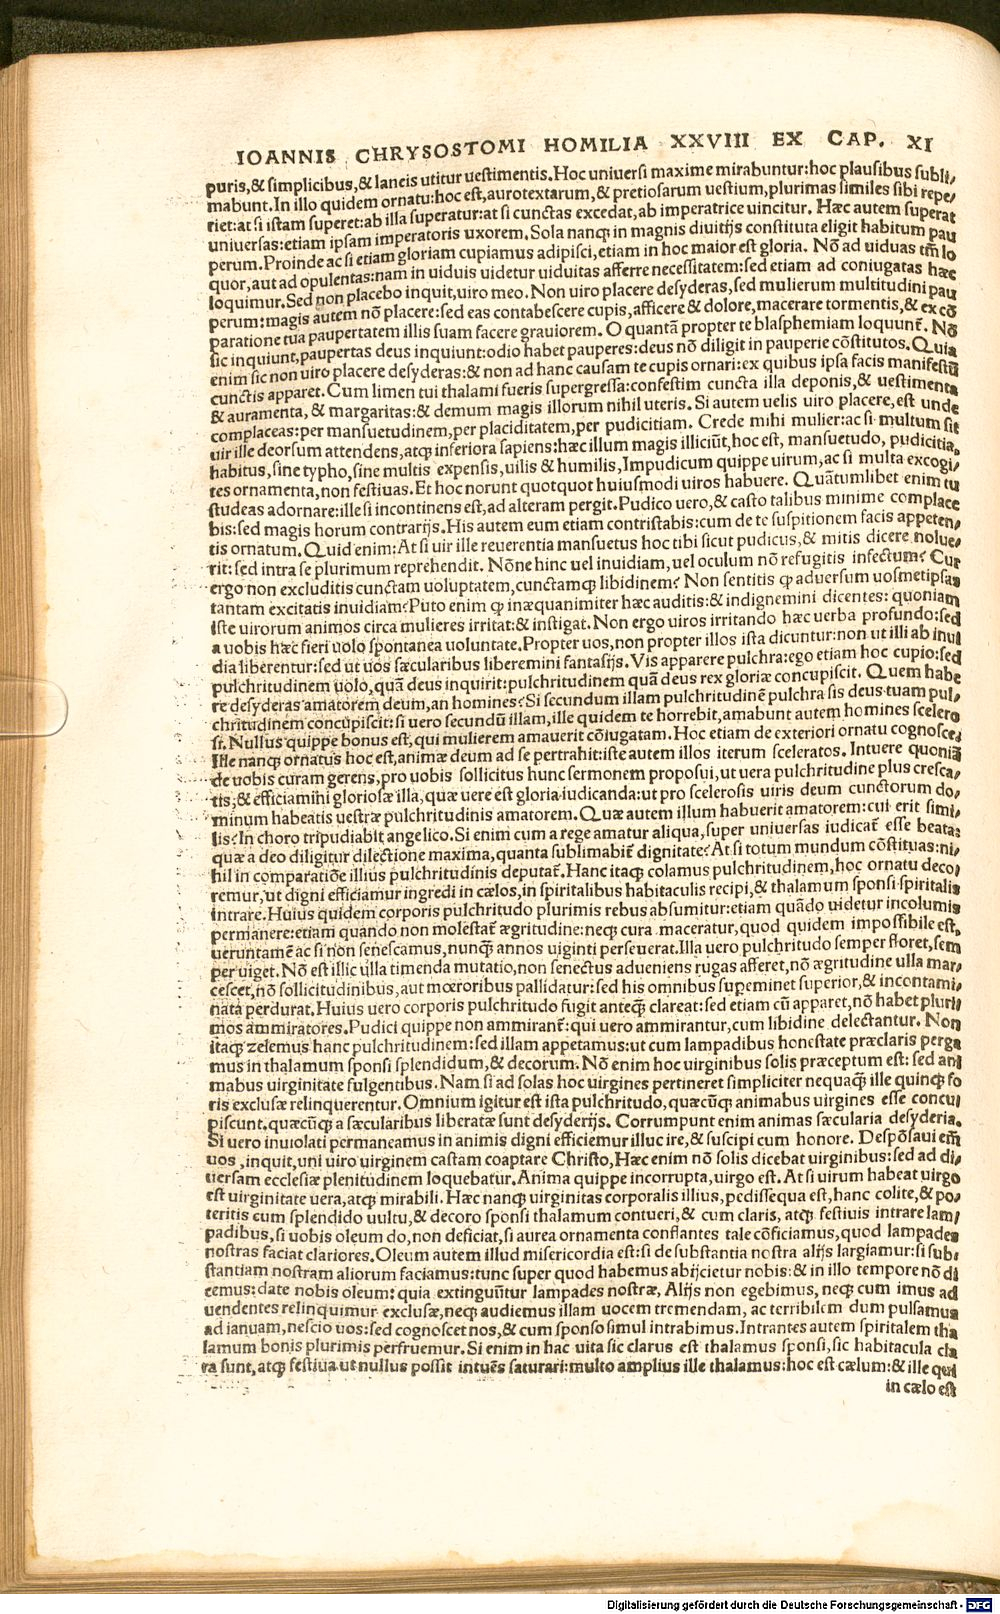 IOANNIS CHRYSOSTOMI HOMILIA XXVIII EX CAP. XI
puris,& simplicibus,& laneis utitur uestimentis.Hoc uniuersi maxime mirabuntur:hoc plausibus subli/
mabunt.In illo quidem ornatu:hoc est,aurotextarum,& pretiosarum uestium,plurimas similes sibi repe/
riet:at si istam superet:ab illa superatur:at si cunctas excedat,ab imperatrice uincitur. Hæc autem superat
uniuersas:etiam ipsam imperatoris uxorem.Sola nanq; in magnis diuitijs constituta eligit habitum pau
perum.Proinde ac si etiam gloriam cupiamus adipisci,etiam in hoc maior est gloria. Nõ ad uiduas tm̃ lo
quor,aut ad opulentas:nam in uiduis uidetur uiduitas afferre necessitatem:sed etiam ad coniugatas hæc
loquimur.Sed non placebo inquit,uiro meo. Non uiro placere desyderas,sed mulierum multitudini pau
perum:magis autem nõ placere:sed eas contabescere cupis,afficere & dolore,macerare tormentis,& ex cõ
paratione tua paupertatem illis suam facere grauiorem. O quantã propter te blasphemiam loquunt̃. Nõ
sic inquiunt,paupertas deus inquiunt:odio habet pauperes:deus nõ diligit in pauperie cõstitutos.Quia
enim sic non uiro placere desyderas:& non ad hanc causam te cupis ornari:ex quibus ipsa facis manifestũ
cunctis apparet.Cum limen tui thalami fueris supergressa:confestim cuncta illa deponis,& uestimenta
& auramenta, & margaritas:& demum magis illorum nihil uteris. Si autem uelis uiro placere,est unde
complaceas:per mansuetudinem,per placiditatem,per pudicitiam. Crede mihi mulier:ac si multum sit
uir ille deorsum attendens,atq; inferiora sapiens:hæc illum magis illiciũt,hoc est, mansuetudo, pudicitia,
habitus, sine typho,sine multis expensis,uilis & humilis,Impudicum quippe uirum,ac si multa excogi/
tes ornamenta,non festiuas.Et hoc norunt quotquot huiusmodi uiros habuere. Quãtumlibet enim tu
studeas adornare:ille si incontinens est,ad alteram pergit.Pudico uero,& casto talibus minime complace
bis:sed magis horum contrarijs.His autem eum etiam contristabis:cum de te suspitionem facis appeten/
tis ornatum. Quid enim:At si uir ille reuerentia mansuetus hoc tibi sicut pudicus,& mitis dicere nolue/
rit:sed intra se plurimum reprehendit. Nõne hinc uel inuidiam,uel oculum nõ refugitis infectum? Cur
ergo non excluditis cunctam uoluptatem,cunctamq; libidinem? Non sentitis ꝙ aduersum uosmetipsas
tantam excitatis inuidiam?Puto enim ꝙ inæquanimiter hæc auditis:& indignemini dicentes: quoniam
iste uirorum animos circa mulieres irritat:& instigat. Non ergo uiros irritando hæc uerba profundo:sed
a uobis hæc fieri uolo spontanea uoluntate.Propter uos,non propter illos ista dicuntur:non ut illi ab inui
dia liberentur:sed ut uos sæcularibus liberemini fantasijs. Vis apparere pulchra:ego etiam hoc cupio:sed
pulchritudinem uolo,quã deus inquirit:pulchritudinem quã deus rex gloriæ concupiscit. Quem habe
re desyderas amatorem deum,an homines?Si secundum illam pulchritudinẽ pulchra sis deus tuam pul/
chritudinem concupiscit:si uero secundũ illam,ille quidem te horrebit,amabunt autem homines scelero
si. Nullus quippe bonus est,qui mulierem amauerit cõiugatam. Hoc etiam de exteriori ornatu cognosce.
Ille nanq; ornatus hoc est,animæ deum ad se pertrahit:iste autem illos iterum sceleratos. Intuere quoniã
de uobis curam gerens,pro uobis sollicitus hunc sermonem proposui,ut uera pulchritudine plus cresca/
tis,& efficiamini gloriosæ illa,quæ uere est gloria iudicanda:ut pro scelerosis uiris deum cunctorum do/
minum habeatis uestræ pulchritudinis amatorem. Quæ autem illum habuerit amatorem:cui erit simi/
lis?In choro tripudiabit angelico.Si enim cum a rege amatur aliqua,super uniuersas iudicat̃ esse beata:
quæ a deo diligitur dilectione maxima,quanta sublimabit̃ dignitate?At si totum mundum cõstituas:ni/
hil in comparatiõe illius pulchritudinis deputat̃.Hanc itaq; colamus pulchritudinem,hoc ornatu deco/
remur,ut digni efficiamur ingredi in cælos,in spiritalibus habitaculis recipi,& thalamum sponsi spiritalis
intrare.Huius quidem corporis pulchritudo plurimis rebus absumitur:etiam quãdo uidetur incolumis
permanere:etiam quando non molestat̃ ægritudine:neq; cura maceratur,quod quidem impossibile est,
ueruntamẽ ac si non senescamus,nunq̃ annos uiginti perseuerat.Illa uero pulchritudo semper floret,sem
per uiget. Nõ est illic ulla timenda mutatio,non senectus adueniens rugas afferet,nõ ægritudine ulla mar/
cescet,nõ sollicitudinibus,aut mœroribus pallidatur:sed his omnibus supeminet superior,& incontami/
nata perdurat.Huius uero corporis pulchritudo fugit anteq̃ clareat:sed etiam cũ apparet,nõ habet pluri
mos ammiratores.Pudici quippe non ammirant̃:qui uero ammirantur,cum libidine delectantur. Non
itaq; zelemus hanc pulchritudinem:sed illam appetamus:ut cum lampadibus honestate præclaris perga
mus in thalamum sponsi splendidum,& decorum. Nõ enim hoc uirginibus solis præceptum est: sed ani
mabus uirginitate fulgentibus. Nam si ad solas hoc uirgines pertineret simpliciter nequaq̃ ille quinq; fo
ris exclusæ relinquerentur.Omnium igitur est ista pulchritudo,quæcũq; animabus uirgines esse concu
piscunt,quæcũq; a sæcularibus liberatæ sunt desyderijs. Corrumpunt enim animas sæcularia desyderia.
Si uero inuiolati permaneamus in animis digni efficiemur illuc ire,& suscipi cum honore. Despõsaui em̃
uos ,inquit,uni uiro uirginem castam coaptare Christo,Hæc enim nõ solis dicebat uirginibus:sed ad di/
uersam ecclesiæ plenitudinem loquebatur.Anima quippe incorrupta,uirgo est. At si uirum habeat uirgo
est uirginitate uera,atq; mirabili. Hæc nanq; uirginitas corporalis illius,pedissequa est,hanc colite,& po/
teritis cum splendido uultu,& decoro sponsi thalamum contueri,& cum claris, atq; festiuis intrare lam/
padibus,si uobis oleum do,non deficiat,si aurea ornamenta conflantes tale cõficiamus,quod lampades
nostras faciat clariores.Oleum autem illud misericordia est:si de substantia nostra alijs largiamur:si sub/
stantiam nostram aliorum faciamus:tunc super quod habemus abijcietur nobis:& in illo tempore nõ di
cemus:date nobis oleum: quia extinguũtur lampades nostræ, Alijs non egebimus, neq; cum imus ad
uendentes relinquimur exclusæ,neq; audiemus illam uocem tremendam, ac terribilem dum pulsamus
ad ianuam,nescio uos:sed cognoscet nos,& cum sponso simul intrabimus.Intrantes autem spiritalem tha
lamum bonis plurimis perfruemur.Si enim in hac uita sic clarus est thalamus sponsi,sic habitacula cla
ra sunt,atq; festiua ut nullus possit intuẽs saturari:multo amplius ille thalamus:hoc est cælum:& ille qui
in cælo est
Digitalisierung gefördert durch die Deutsche Forschungsgemeinschaft - DFG